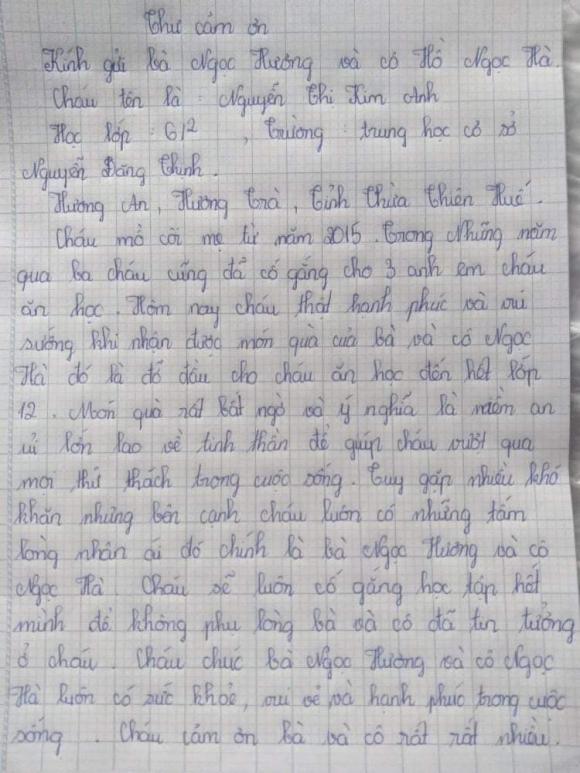 Thư cảm ơn
Kính gửi bà Ngọc Hương và cô Hồ Ngọc Hà.
Cháu tên là : Nguyễn Thị Kim Anh
Học lớp : 6/2 , Trường : trung học cơ sở
Nguyễn Đăng Thịnh.
Hương An, Hương Trà, Tỉnh Thừa Thiên Huế.
Cháu mồ côi mẹ từ năm 2015. Trong Những năm
qua ba cháu cũng đã cố gắng cho 3 anh em cháu
ăn học. Hôm nay cháu thật hạnh phúc và vui
sướng khi nhận được món quà của bà và cô Ngọc
Hà đó là đỡ đầu cho cháu ăn học đến hết lớp
12. Món quà rất bất ngờ và ý nghĩa là niềm an
ủi lớn lao về tinh thần để giúp cháu vượt qua
mọi thử thách trong cuộc sống. Tuy gặp nhiều khó
khăn nhưng bên cạnh cháu luôn có những tấm
lòng nhân ái đó chính là bà Ngọc Hương và cô
Ngọc Hà. Cháu sẽ luôn cố gắng học tập hết
mình để không phụ lòng bà và cô đã tin tưởng
ở cháu. Cháu chúc bà Ngọc Hương và cô Ngọc
Hà luôn có sức khỏe, vui vẻ và hạnh phúc trong cuộc
sống. Cháu cảm ơn bà và cô rất rất nhiều.